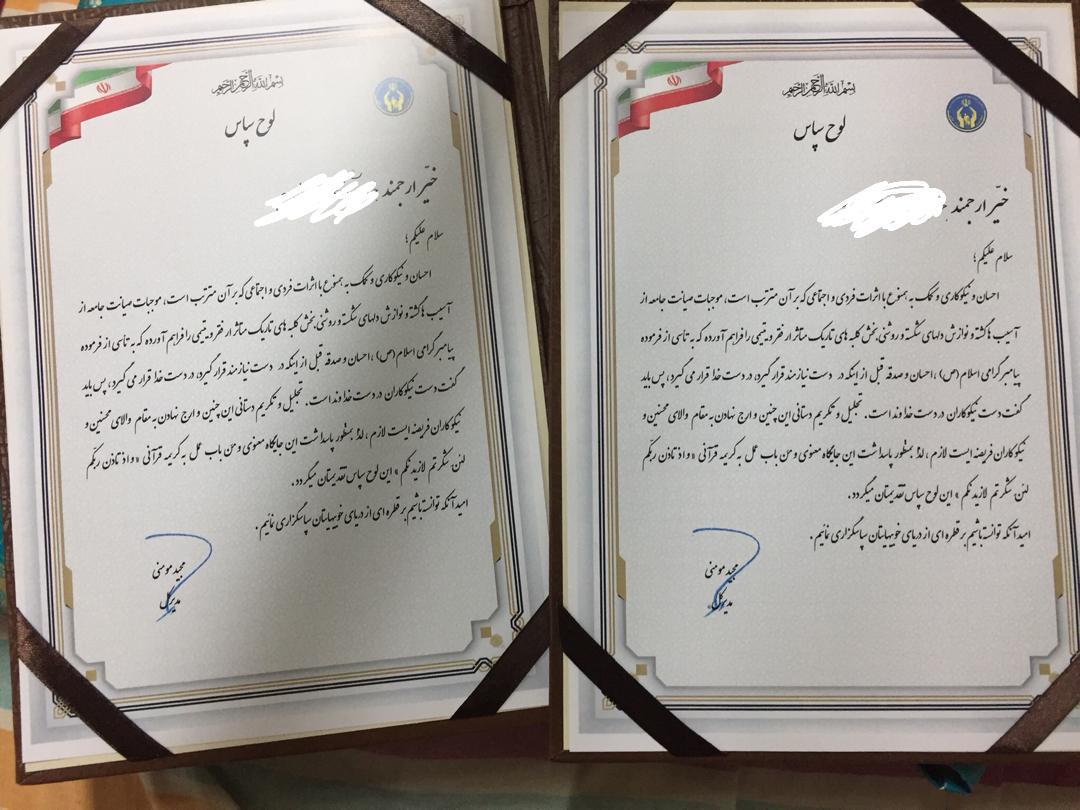 بسم الله الرحمن الرحیم
لوح سپاس
خیّر ارجمند
سلام علیکم؛
احسان و نیکوکاری و کمک به همنوع با اثرات فردی و اجتماعی که بر آن مترتب است، موجبات صیانت جامعه از
آسیب ها گشته و نوازش دلهای شکسته و روشنی بخش کلبه های تاریک متأثر از فقر و یتیمی را فراهم آورده که به تأسی از فرموده
پیامبر گرامی اسلام (ص) ، احسان و صدقه قبل از اینکه در دست نیازمند قرار گیرد، در دست خدا قرار می گیرد، پس باید
گفت دست نیکوکاران در دست خداوند است. تجلیل و تکریم دستانی این چنین و ارج نهادن به مقام والای محسنین و
نیکوکاران فریضه ایست لازم ، لذا بمنظور پاسداشت این جایگاه معنوی و من باب عمل به کریمه قرآنی « و اذ تاذن ربکم
لئن شکرتم لازیدنکم » این لوح سپاس تقدیمتان میگردد.
امید آنکه توانسته باشیم بر قطره ای از دریای خوبیهایتان سپاسگزاری نمائیم .
مجید مومنی
مدیر کل
بسم الله الرحمن الرحیم
لوح سپاس
خیّر ارجمند
سلام علیکم؛
احسان و نیکوکاری و کمک به همنوع با اثرات فردی و اجتماعی که بر آن مترتب است، موجبات صیانت جامعه از
آسیب ها گشته و نوازش دلهای شکسته و روشنی بخش کلبه های تاریک متأثر از فقر و یتیمی را فراهم آورده که به تأسی از فرموده
پیامبر گرامی اسلام (ص) ، احسان و صدقه قبل از اینکه در دست نیازمند قرار گیرد، در دست خدا قرار می گیرد، پس باید
گفت دست نیکوکاران در دست خداوند است. تجلیل و تکریم دستانی این چنین و ارج نهادن به مقام والای محسنین و
نیکوکاران فریضه ایست لازم ، لذا بمنظور پاسداشت این جایگاه معنوی و من باب عمل به کریمه قرآنی « و اذ تاذن ربکم
لئن شکرتم لازیدنکم » این لوح سپاس تقدیمتان میگردد.
امید آنکه توانسته باشیم بر قطره ای از دریای خوبیهایتان سپاسگزاری نمائیم .
مجید مومنی
مدیر کل